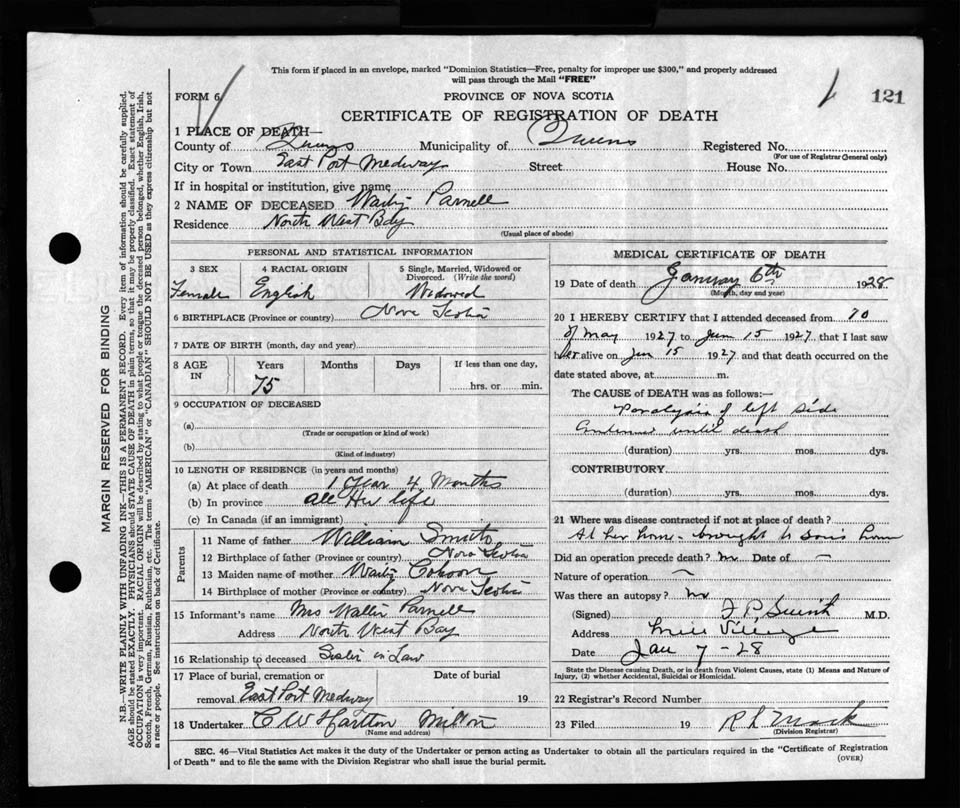 This form if placed in an envelope, marked "Dominion Statistics—Free, penalty for improper use $300," and properly addressed
will pass through the Mail "FREE"
FORM 6
PROVINCE OF NOVA SCOTIA
121
CERTIFICATE OF REGISTRATION OF DEATH
1 PLACE OF DEATH—
County of Queens Municipality of Queens Registered No.
(For use of Registrar General only)
City or Town East Port Medway Street House No.
If in hospital or institution, give name
2 NAME OF DECEASED Parnell
Residence North West Bay
(Usual place of abode)
PERSONAL AND STATISTICAL INFORMATION
3 SEX 4 RACIAL ORIGIN 5 Single, Married, Widowed or
Divorced. (Write the word)
Female English Widowed
6 BIRTHPLACE (Province or country) Nova Scotia
7 DATE OF BIRTH (month, day and year)
8 AGE Years Months Days If less than one day,
IN 75 hrs. or min.
9 OCCUPATION OF DECEASED
(a)
(Trade or occupation or kind of work)
(b)
(Kind of industry)
10 LENGTH OF RESIDENCE (in years and months)
(a) At place of death 1 Year 4 Months
(b) In province all Her life
(c) In Canada (if an immigrant)
Parents
11 Name of father William Smith
12 Birthplace of father (Province or country) Nova Scotia
13 Maiden name of mother Cohoon
14 Birthplace of mother (Province or country) Nova Scotia
15 Informant's name Mrs Parnell
Address North West Bay
16 Relationship to deceased Sister in Law
17 Place of burial, cremation or Date of burial
removal East Port Medway 19
18 Undertaker C W Milton
(Name and address)
MEDICAL CERTIFICATE OF DEATH
19 Date of death January 6th 1928
(Month, day and year)
20 I HEREBY CERTIFY that I attended deceased from 10
of May 1927 to Jun 15 1927, that I last saw
her alive on Jun 15 1927, and that death occurred on the
date stated above, at m.
The CAUSE of DEATH was as follows:—
Paralysis of left side
until death
(duration) yrs. mos. dys.
CONTRIBUTORY
(duration) yrs. mos. dys.
21 Where was disease contracted if not at place of death?
At her home - brought to sons home
Did an operation precede death? no Date of —
Nature of operation —
Was there an autopsy? no
(Signed) F. P. Smith M.D.
Address Mill Village
Date Jan 7 - 28
State the Disease causing Death, or in death from Violent Causes, state (1) Means and Nature of
Injury, (2) whether Accidental, Suicidal or Homicidal.
22 Registrar's Record Number
23 Filed 19 R L Mack
(Division Registrar)
SEC. 46—Vital Statistics Act makes it the duty of the Undertaker or person acting as Undertaker to obtain all the particulars required in the "Certificate of Registration
of Death" and to file the same with the Division Registrar who shall issue the burial permit.
(OVER)
MARGIN RESERVED FOR BINDING
N.B.—WRITE PLAINLY WITH UNFADING INK—THIS IS A PERMANENT RECORD. Every item of information should be carefully supplied.
AGE should be stated EXACTLY. PHYSICIANS should STATE CAUSE OF DEATH in plain terms, so that it may be properly classified. Exact statement of
OCCUPATION is very important. RACIAL ORIGIN will be described by stating to what people or tongue the deceased person belonged, whether English, Irish,
Scotch, French, German, Russian, Ruthenian, etc. The terms "AMERICAN" or "CANADIAN" SHOULD NOT BE USED as they express citizenship but not
a race or people. See instructions on back of Certificate.